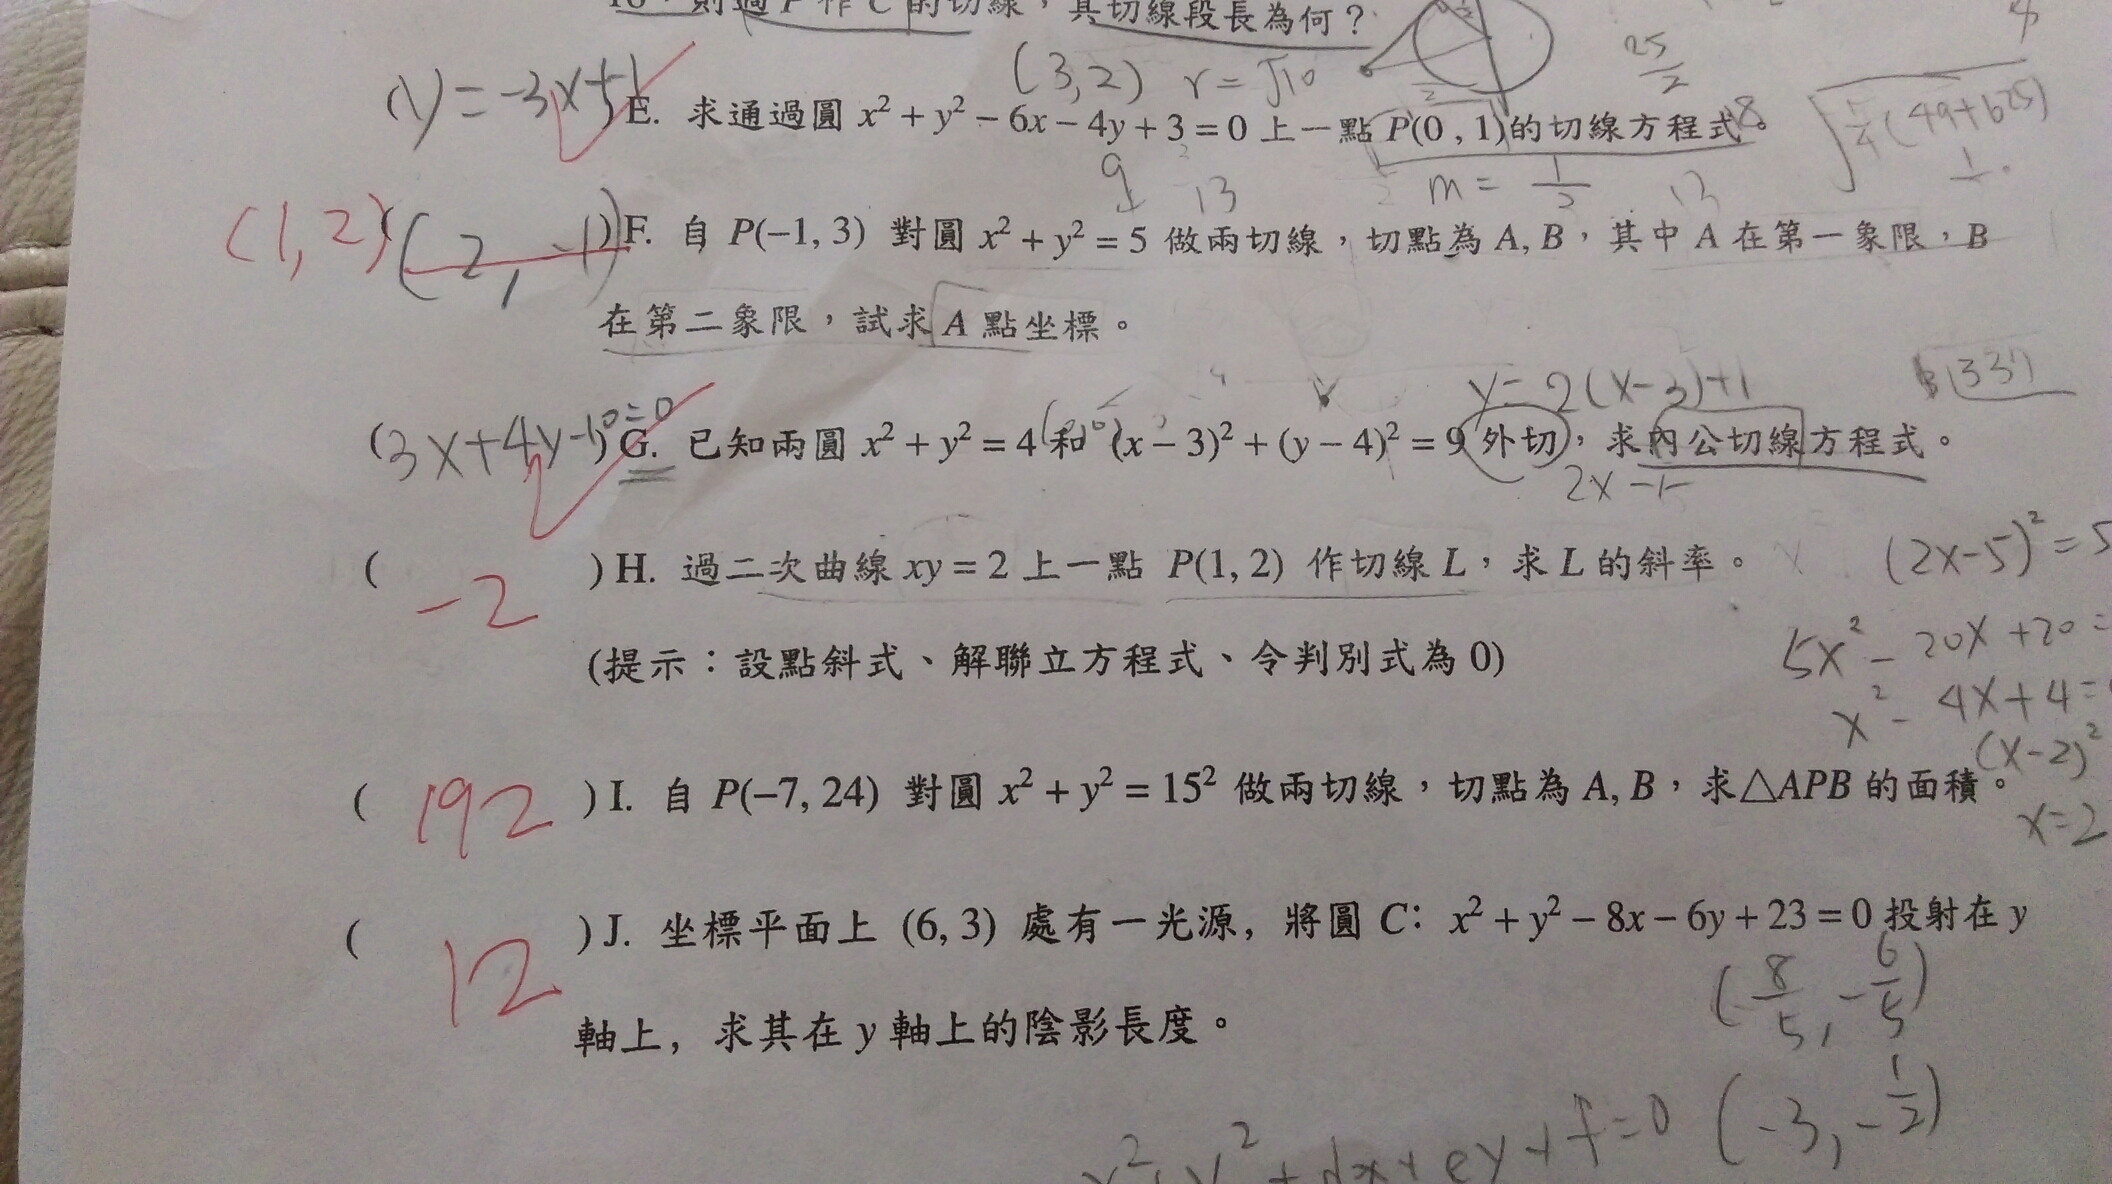 的切線，其切線段長為何？
(3,2) r=√10
25/2
(y=-3x+1)E. 求通過圓 x²+y²-6x-4y+3=0 上一點 P(0, 1)的切線方程式。
9
13
m=1/3
13
(1,2)
(2, -1))F. 自 P(-1, 3) 對圓 x²+y²=5 做兩切線，切點為 A, B，其中 A 在第一象限，B
在第二象限，試求 A 點坐標。
y=2(x-3)+1
(3x+4y-10=0)G. 已知兩圓 x²+y²=4 和 (x-3)²+(y-4)²=9 外切，求內公切線方程式。
( -2 )H. 過二次曲線 xy=2 上一點 P(1, 2) 作切線 L，求 L 的斜率。
(2x-5)²=5
(提示：設點斜式、解聯立方程式、令判別式為 0)
5x²-20x+20=
x²-4x+4=
(x-2)²
( 192 )I. 自 P(-7, 24) 對圓 x²+y²=15² 做兩切線，切點為 A, B，求△APB 的面積。
x=2
( 12 )J. 坐標平面上 (6, 3) 處有一光源, 將圓 C: x²+y²-8x-6y+23=0 投射在 y
(8/5, -6/5)
軸上, 求其在 y 軸上的陰影長度。
x²+y²+dx+ey+f=0
(-3, -1/2)